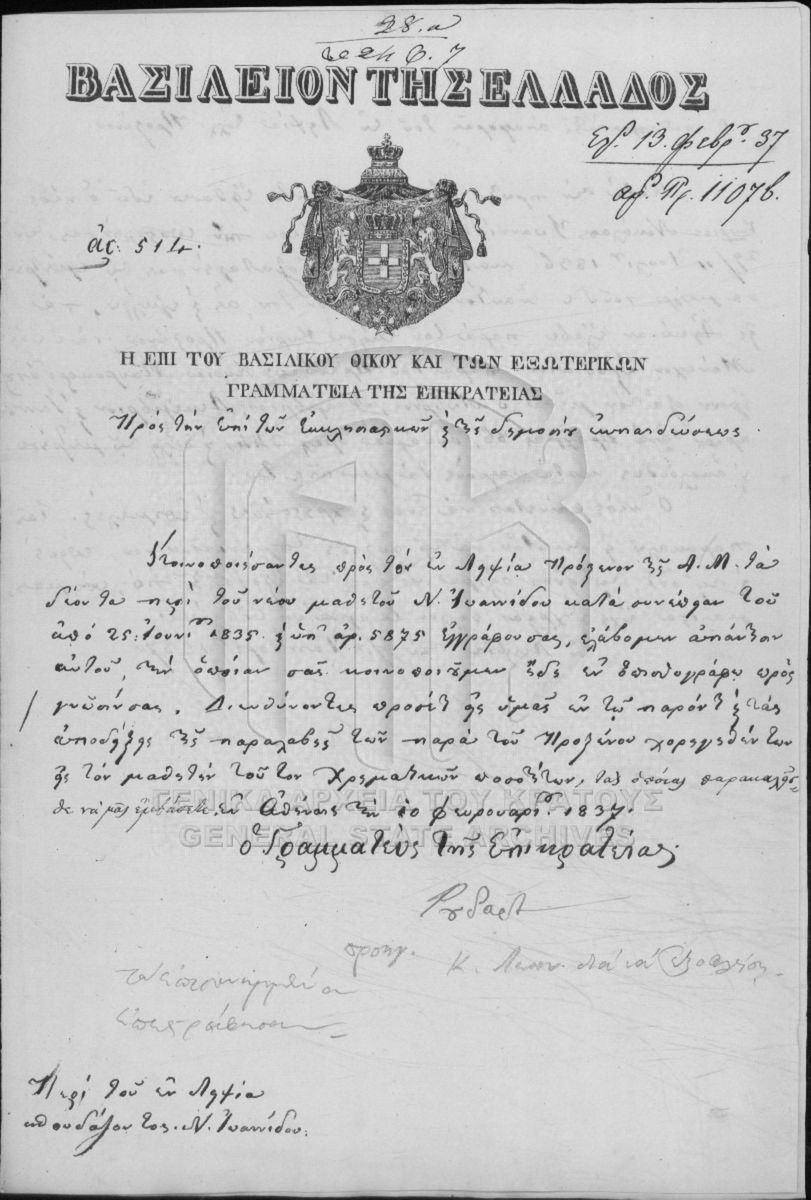 28. α
φ. 7
ΒΑΣΙΛΕΙΟΝ ΤΗΣ ΕΛΛΑΔΟΣ
13. φεβρ. 37
Πρ. 11076.
ἀρ: 514.
Η ΕΠΙ ΤΟΥ ΒΑΣΙΛΙΚΟΥ ΟΙΚΟΥ ΚΑΙ ΤΩΝ ΕΞΩΤΕΡΙΚΩΝ
ΓΡΑΜΜΑΤΕΙΑ ΤΗΣ ΕΠΙΚΡΑΤΕΙΑΣ
Πρὸς τὴν ἐπὶ τῶν ἐκκλησιαστικῶν καὶ τῆς δημοσίου ἐκπαιδεύσεως.
Κοινοποιήσαντες πρὸς τὸν ἐν Λειψίᾳ Πρόξενον τῆς Α. Μ. τὰ
δέοντα περὶ τοῦ νέου μαθητοῦ Ν. Ἰωαννίδου κατὰ συνέπειαν τοῦ
ἀπὸ 25. Ἰουνίου 1835. καὶ ὑπ' ἀρ. 5875 ἐγγράφου σας, ἐλάβομεν ἀπάντησιν
αὐτοῦ, τὴν ὁποίαν σας κοινοποιοῦμεν ἤδη ἐν ἀντιγράφῳ πρὸς
γνῶσίν σας. Διευθύνοντες προσέτι εἰς ὑμᾶς ἐν τῷ παρόντι καὶ τὰς
ἀποδείξεις τῆς παραλαβῆς τῶν παρὰ τοῦ Προξένου χορηγηθέντων
εἰς τὸν μαθητὴν τοῦτον χρηματικῶν ποσοτήτων, τὰς ὁποίας παρακαλεῖσ-
θε νὰ μᾶς ἐν Ἀθήναις τὴν 10 Φεβρουαρίου 1837.
Ὁ Γραμματεὺς τῆς Ἐπικρατείας
Ρουδαρτ
Κ.
ἐπεστράφησαν
Περὶ τοῦ ἐν Λειψίᾳ
σπουδάζοντος Ν. Ἰωαννίδου.
ΓΕΝΙΚΑ ΑΡΧΕΙΑ ΤΟΥ ΚΡΑΤΟΥΣ
GENERAL STATE ARCHIVES